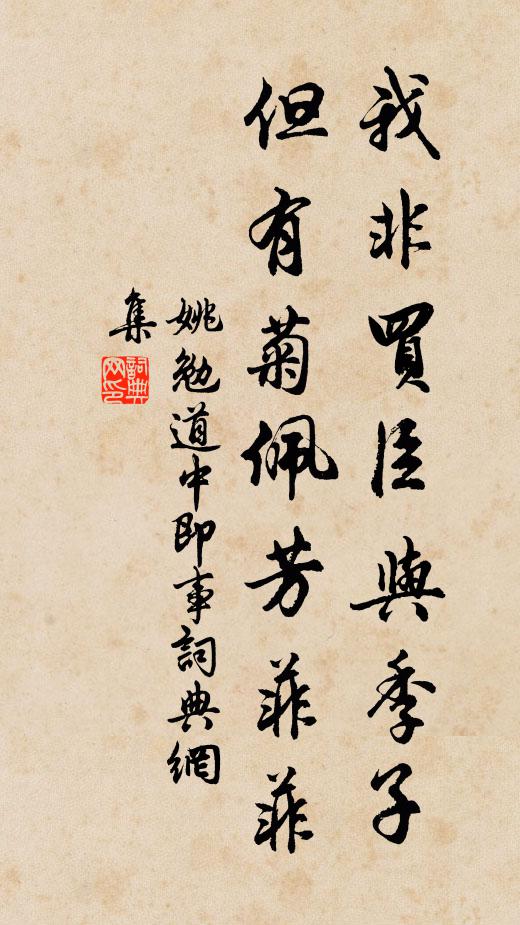 我非買臣與季子
但有菊佩芳菲菲
姚勉道中即事詞典網
集
詞典網印